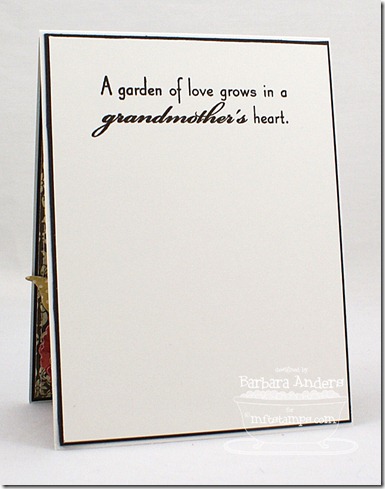 A garden of love grows in a
grandmother's heart.
designed by
Barbara Anders
for
mftstamps.com